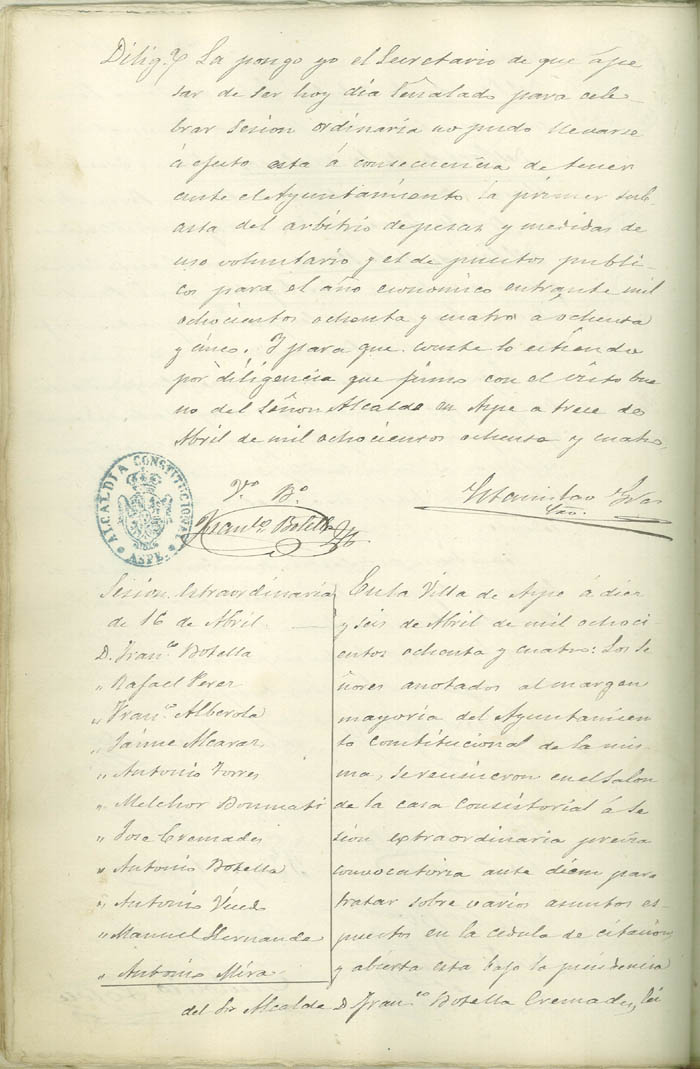 Dilig.ª La pongo yo el Secretario de que á pe
sar de ser hoy dia señalado para cele
brar sesion ordinaria no pudo llevarse
á efecto esta á consecuencia de tener
ante el Ayuntamiento la primer sub
asta del arbitrio de pesas y medidas de
uso voluntario y el de puestos publi-
cos para el año economico entrante mil
ochocientos ochenta y cuatro á ochenta
y cinco. Y para que conste lo estiendo
por diligencia que firmo con el visto bue
no del Señor Alcalde en Aspe a trece de
Abril de mil ochocientos ochenta y cuatro.
ALCALDIA CONSTITUCIONAL
ASPE
V.º B.º
Fran.co Botella
Estanislao
Srio.
Sesion extraordinaria
de 16 de Abril
D. Fran.co Botella
" Rafael Perez
" Fran.co Alberola
" Jaime Alcaraz
" Antonio Torres
" Melchor Bonmati
" Jose Cremades
" Antonio Botella
" Antonio
" Manuel Hernande
" Antonio Mira
En la Villa de Aspe á diez
y seis de Abril de mil ochoci-
entos ochenta y cuatro: Los Se
ñores anotados al margen
mayoria del Ayuntamien
to Constitucional de la mis-
ma, se reunieron en el Salon
de la casa Consistorial á se
sion extraordinaria previa
convocatoria ante diem para
tratar sobre varios asuntos es-
puestos en la cedula de citacion
y abierta esta bajo la presidencia
del Sr Alcalde D. Fran.co Botella Cremades, lei